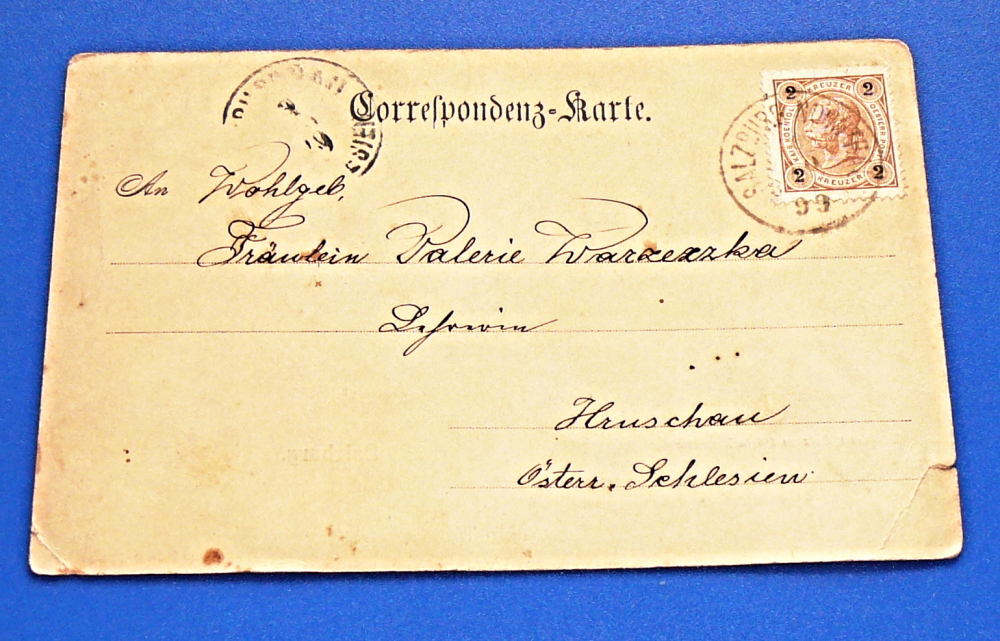 Correspondenz-Karte.
2 KREUZER 2
SALZBURG
2 KREUZER 2
99
An Wohlgeb.
Fräulein Valerie Warzeszka
Lehrerin
Hruschau
Österr. Schlesien